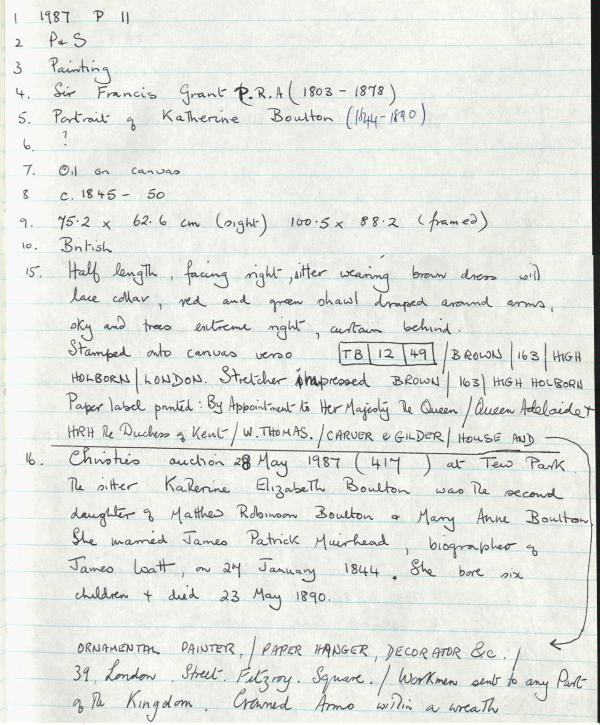 1 1987 P 11
2 P&S
3 Painting
4. Sir Francis Grant P.R.A (1803 - 1878)
5. Portrait of Katherine Boulton (1844-1890)
6. ?
7. Oil on canvas
8 c. 1845 - 50
9. 75.2 x 62.6 cm (sight) 100.5 x 88.2 (framed)
10. British
15. Half length, facing right, sitter wearing brown dress with
lace collar, red and green shawl draped around arms,
sky and trees extreme right, curtain behind.
Stamped onto canvas verso TB | 12 | 49 / BROWN | 163 | HIGH
HOLBORN | LONDON. Stretcher impressed BROWN | 163 | HIGH HOLBORN
Paper label printed: By Appointment to Her Majesty The Queen / Queen Adelaide +
HRH The Duchess of Kent / W. THOMAS. / CARVER & GILDER / HOUSE AND
16. Christies auction 28 May 1987 (417 ) at Tew Park.
The sitter Katherine Elizabeth Boulton was the second
daughter of Matthew Robinson Boulton & Mary Anne Boulton
She married James Patrick Muirhead, biographer of
James Watt, on 27 January 1844. She bore six
children + died 23 May 1890.
ORNAMENTAL PAINTER, / PAPER HANGER, DECORATOR &c. /
39, London. Street. Fitzroy. Square. / Workmen sent to any Part
of The Kingdom. Crowned Arms within a wreath